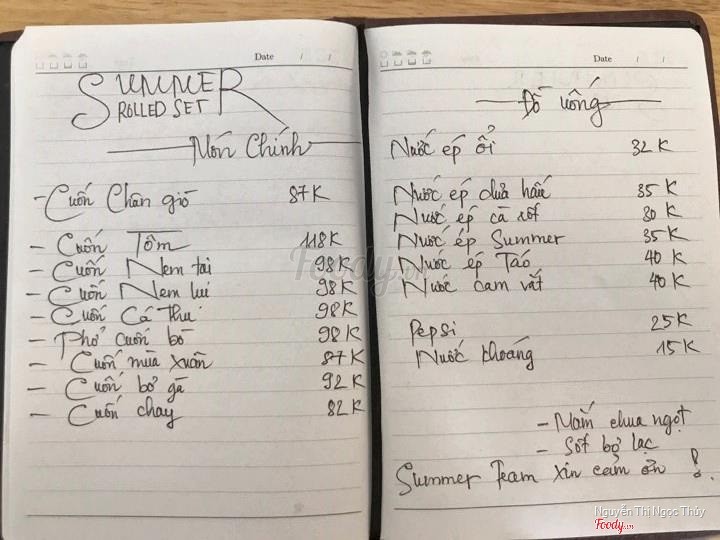 Date / /
SUMMER
ROLLED SET
Món Chính
- Cuốn Chân giò 87K
- Cuốn Tôm 118K
- Cuốn Nem tai 98K
- Cuốn Nem lụi 98K
- Cuốn Cá Thu 98K
- Phở cuốn bò 98K
- Cuốn mùa xuân 87K
- Cuốn bơ gà 92K
- Cuốn chay 82K
Foody.vn
Date / /
Đồ uống
Nước ép ổi 32K
Nước ép dưa hấu 35K
Nước ép cà rốt 30K
Nước ép Summer 35K
Nước ép Táo 40K
Nước cam vắt 40K
Pepsi 25K
Nước khoáng 15K
- Mắm chua ngọt
- Sốt bơ lạc
Summer Team xin cảm ơn !
Nguyễn Thị Ngọc Thúy
Foody.vn